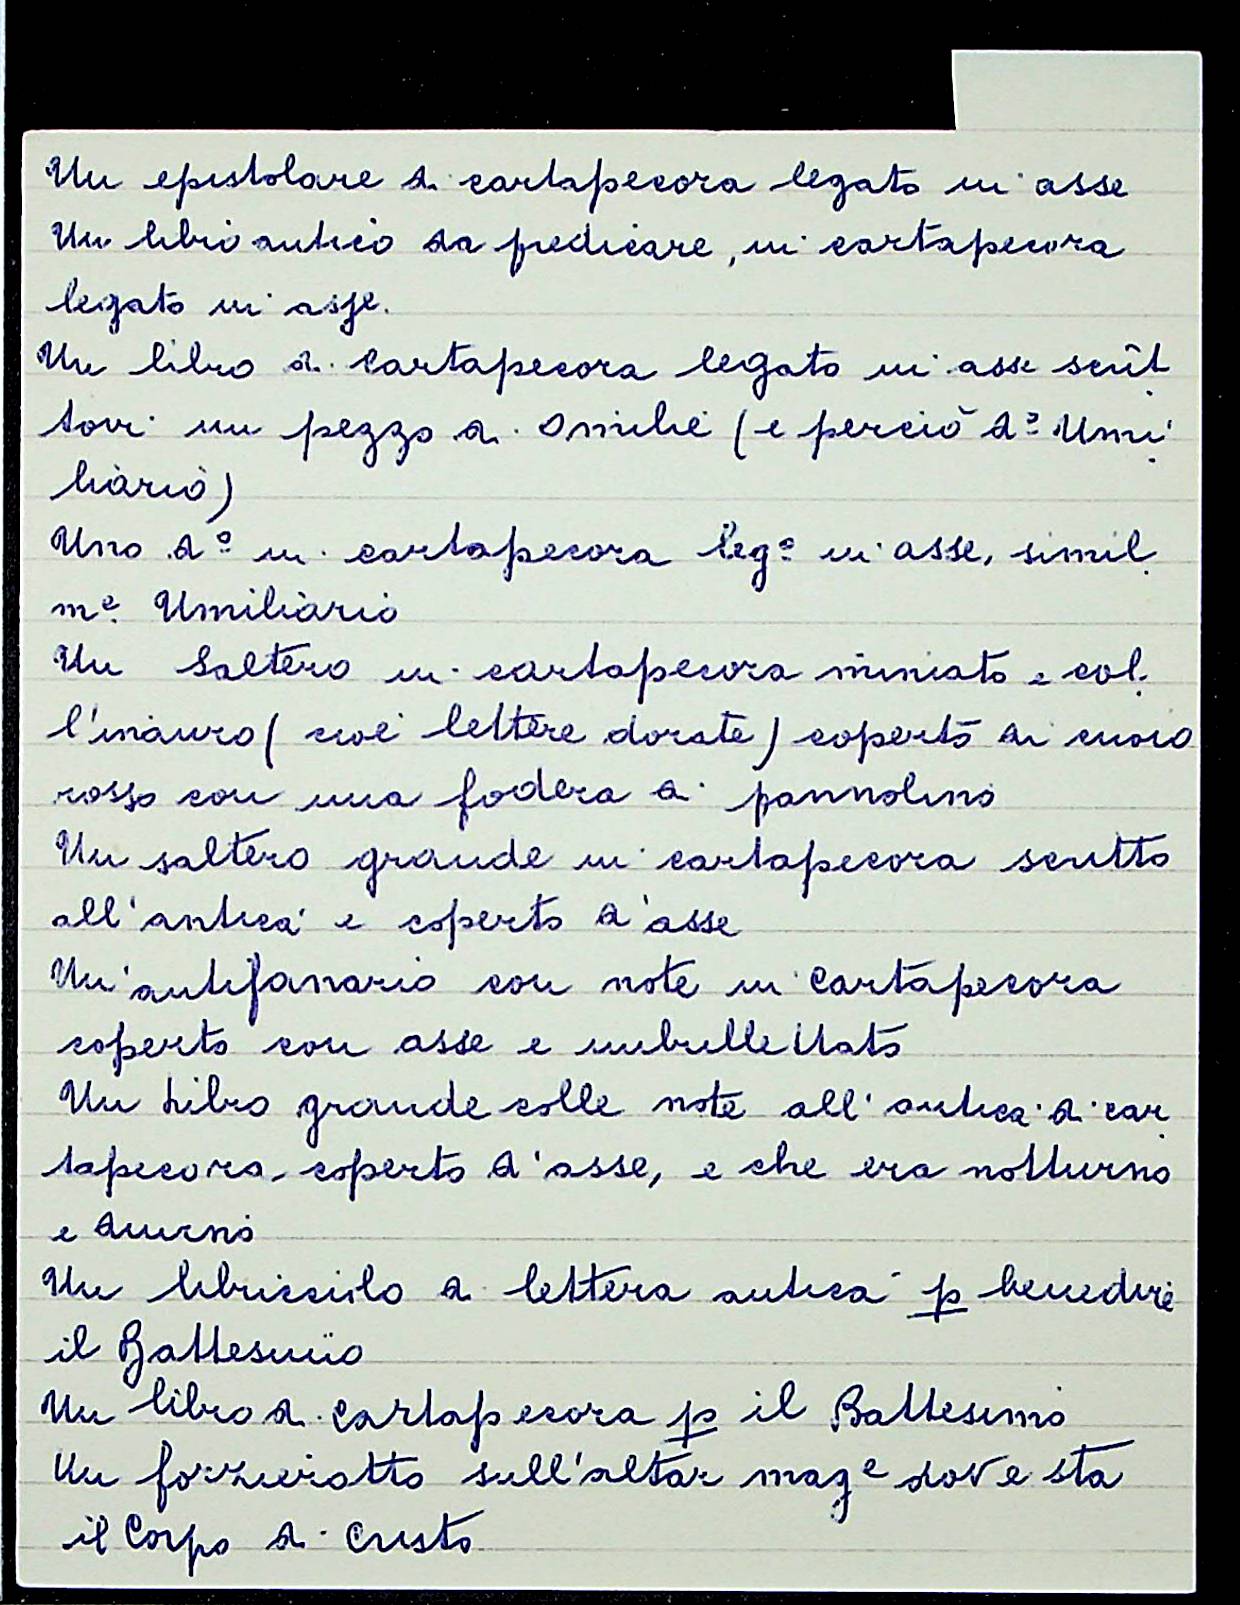 Un epistolare di cartapecora legato in asse
Un libro antico da predicare, in cartapecora
legato in asse.
Un libro di cartapecora legato in asse scrit
tovi un pezzo di Omilie (e perciò d.º Umi
liario)
Uno d.º in cartapecora leg.º in asse, simil
m.e Umiliario
Un Saltero in cartapecora miniato e col
l'inauro (cioè lettere dorate) coperto di cuoio
rosso con una fodera di pannolino
Un saltero grande in cartapecora scritto
all'antica e coperto d'asse
Un'antifanario con note in cartapecora
coperto con asse e imbullettato
Un Libro grande colle note all'antica di car
tapecora, coperto d'asse, e che era notturno
e diurno
Un libricciolo di lettera antica p benedire
il Battesimo
Un libro di cartapecora p il Battesimo
Un forzierotto sull'altar mag.e dov'e sta
il Corpo di Cristo